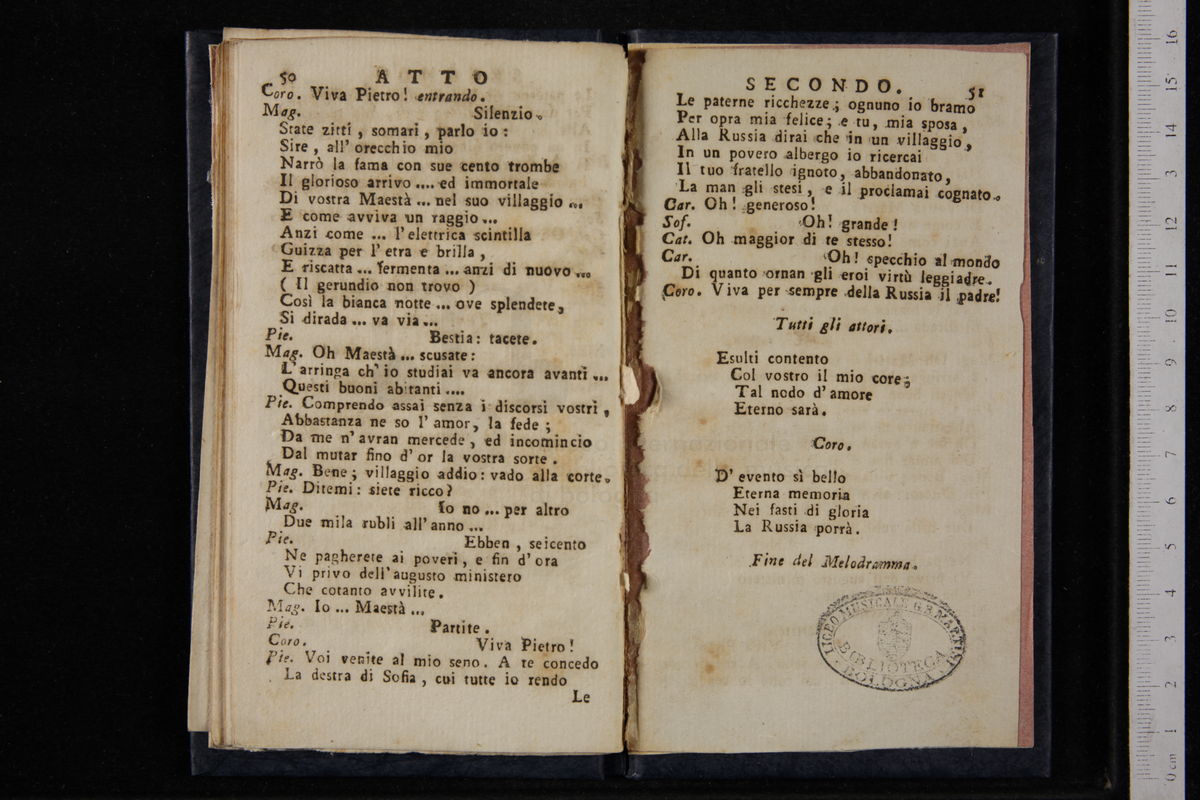 50 ATTO
Coro. Viva Pietro! entrando.
Mag. Silenzio.
State zitti, somari, parlo io:
Sire, all' orecchio mio
Narrò la fama con sue cento trombe
Il glorioso arrivo .... ed immortale
Di vostra Maestà ... nel suo villaggio ...
E come avviva un raggio ...
Anzi come ... l'elettrica scintilla
Guizza per l' etra e brilla,
E riscatta ... fermenta ... anzi di nuovo ...
( Il gerundio non trovo )
Così la bianca notte ... ove splendete,
Si dirada ... va via ...
Pie. Bestia: tacete.
Mag. Oh Maestà ... scusate:
L'arringa ch' io studiai va ancora avanti ...
Questi buoni abitanti ....
Pie. Comprendo assai senza i discorsi vostri,
Abbastanza ne so l' amor, la fede;
Da me n' avran mercede, ed incomincio
Dal mutar fino d' or la vostra sorte.
Mag. Bene; villaggio addio: vado alla corte.
Pie. Ditemi: siete ricco?
Mag. Io no ... per altro
Due mila rubli all' anno ...
Pie. Ebben, seicento
Ne pagherete ai poveri, e fin d' ora
Vi privo dell' augusto ministero
Che cotanto avvilite.
Mag. Io ... Maestà ...
Pie. Partite.
Coro. Viva Pietro!
Pie. Voi venite al mio seno. A te concedo
La destra di Sofia, cui tutte io rendo
Le
SECONDO. 51
Le paterne ricchezze; ognuno io bramo
Per opra mia felice; e tu, mia sposa,
Alla Russia dirai che in un villaggio,
In un povero albergo io ricercai
Il tuo fratello ignoto, abbandonato,
La man gli stesi, e il proclamai cognato.
Car. Oh! generoso!
Sof. Oh! grande!
Cat. Oh maggior di te stesso!
Car. Oh! specchio al mondo
Di quanto ornan gli eroi virtù leggiadre.
Coro. Viva per sempre della Russia il padre!
Tutti gli attori.
Esulti contento
Col vostro il mio core;
Tal nodo d' amore
Eterno sarà.
Coro.
D' evento sì bello
Eterna memoria
Nei fasti di gloria
La Russia porrà.
Fine del Melodramma.
LICEO MUSICALE G.B. MARTINI
BIBLIOTECA
BOLOGNA
0 cm 1 2 3 4 5 6 7 8 9 10 11 12 13 14 15 16